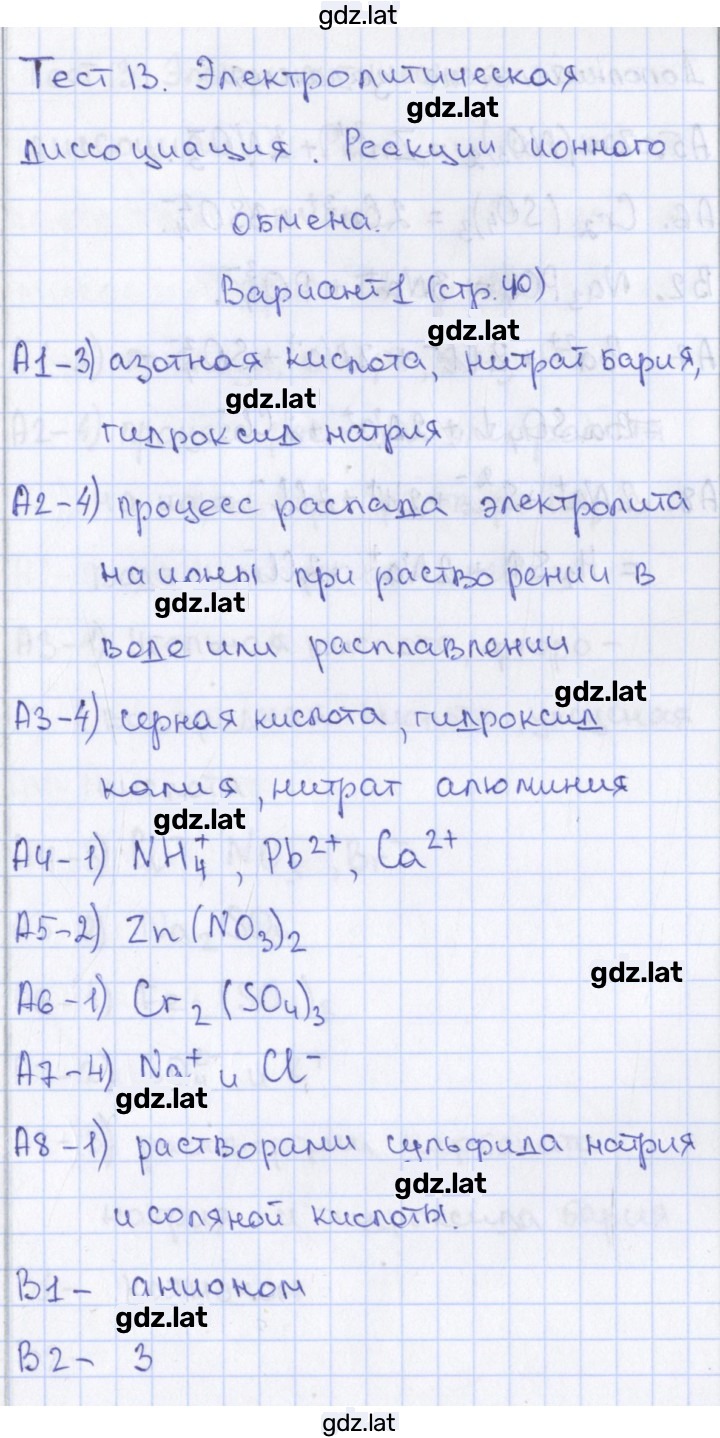 gdz.lat
Тест 13. Электролитическая
gdz.lat
диссоциация. Реакции ионного
обмена.
Вариант 1 (стр. 40)
gdz.lat
А1-3) азотная кислота, нитрат бария,
gdz.lat
гидроксид натрия
А2-4) процесс распада электролита
на ионы при растворении в
gdz.lat
воде или расплавлении
gdz.lat
А3-4) серная кислота, гидроксид
калия, нитрат алюминия
gdz.lat
А4-1) NH₄⁺, Pb²⁺, Ca²⁺
А5-2) Zn(NO₃)₂
gdz.lat
А6-1) Cr₂(SO₄)₃
А7-4) Na⁺ и Cl⁻
gdz.lat
А8-1) растворами сульфида натрия
gdz.lat
и соляной кислоты.
В1- анионом
gdz.lat
В2- 3
gdz.lat